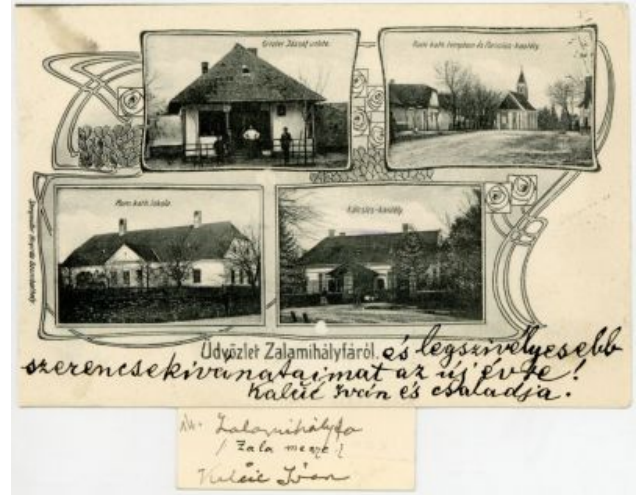 Grieter József üzlete.
Rom. kath. templom és
Rom. kath. iskola.
Kárcsics-kastély
Üdvözlet Zalamihályfáról. és legszivélyesebb
szerencsekívánataimat az új évre!
Kaluić Iván és családja.
Zalamihályfa
/ Zala megye /
Kaluić Iván